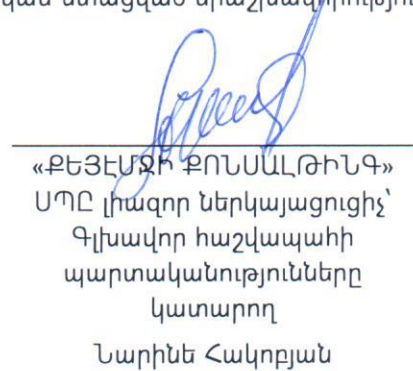 «ՔԵՅԷՄՋԻ ՔՈՆՍԱԼԹԻՆԳ»
ՍՊԸ լիազոր ներկայացուցիչ՝
Գլխավոր հաշվապահի
պարտականությունները
կատարող
Նարինե Հակոբյան